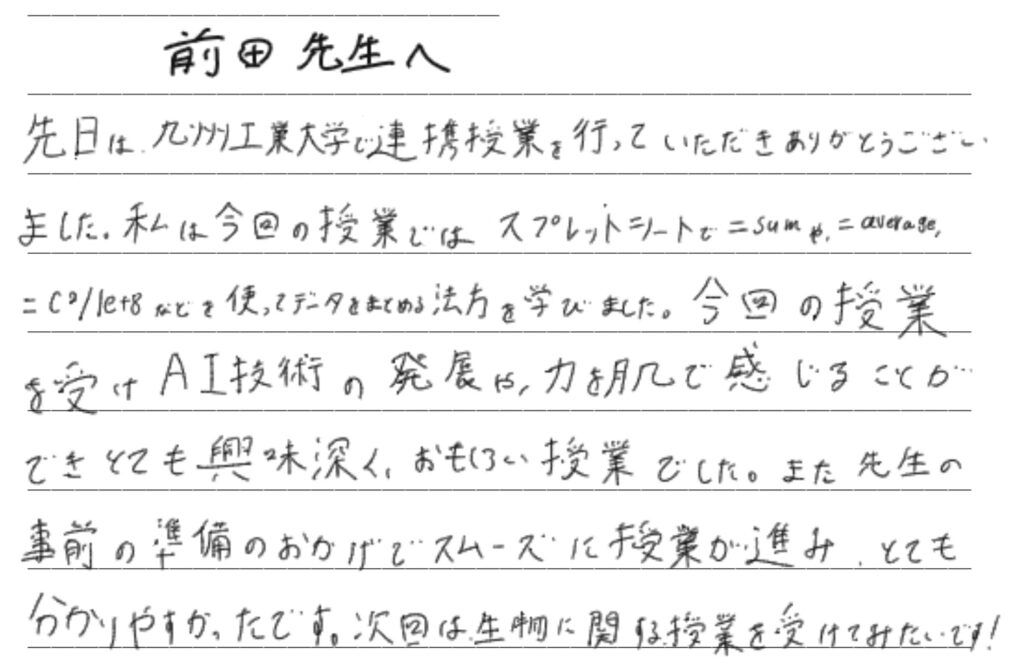 前田先生へ
先日は、九州工業大学で連携授業を行っていただきありがとうござい
ました。私は今回の授業では スプレットシートで =sumや、=average,
=C9/1e+8 などを使ってデータをまとめる方法を学びました。今回の授業
を受けAI技術の発展や、力を肌で感じることが
できとても興味深く、おもしろい授業でした。また先生の
事前の準備のおかげでスムーズに授業が進み、とても
分かりやすかったです。次回は生物に関する授業を受けてみたいです!